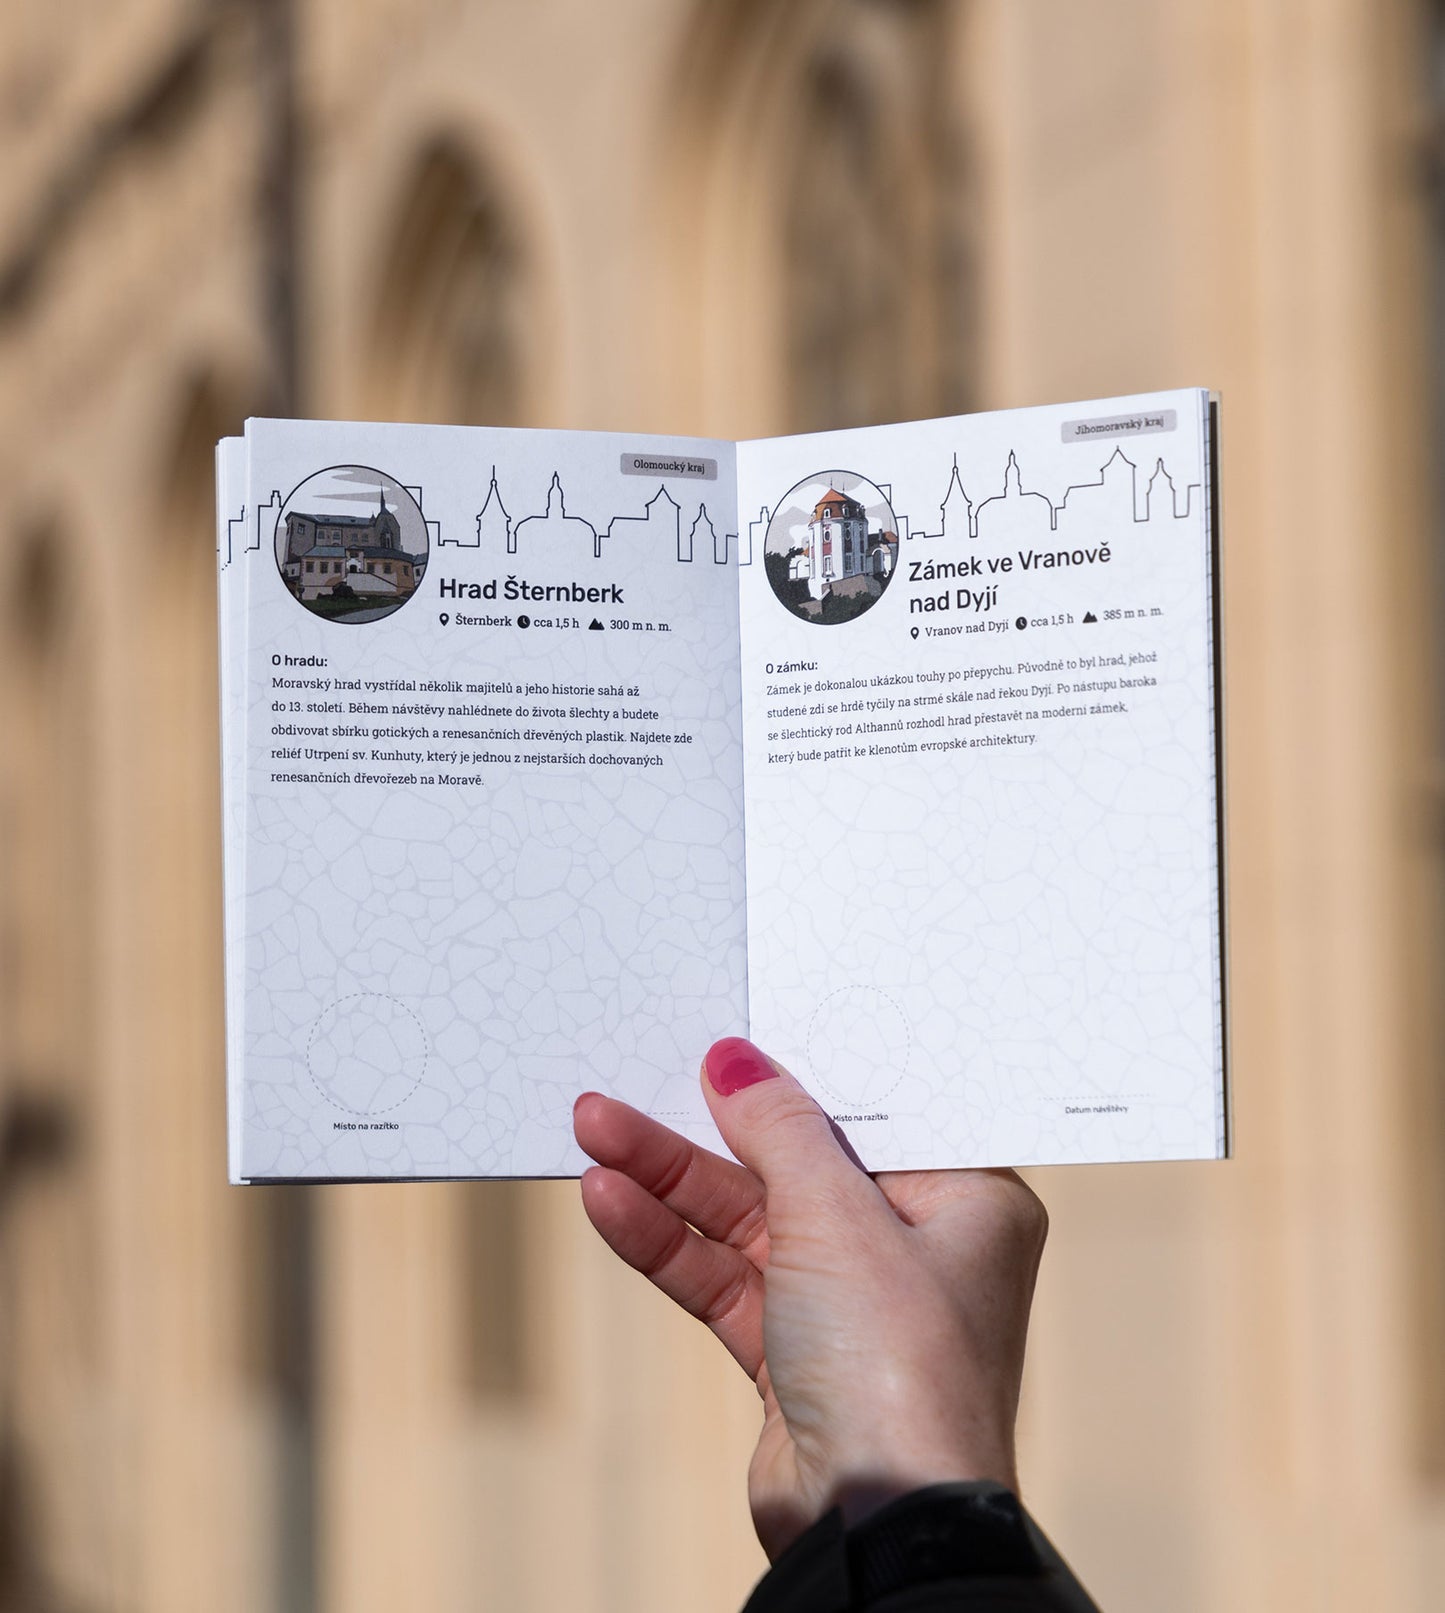 Olomoucký kraj
Hrad Šternberk
Šternberk cca 1,5 h 300 m n. m.
O hradu:
Moravský hrad vystřídal několik majitelů a jeho historie sahá až
do 13. století. Během návštěvy nahlédnete do života šlechty a budete
obdivovat sbírku gotických a renesančních dřevěných plastik. Najdete zde
reliéf Utrpení sv. Kunhuty, který je jednou z nejstarších dochovaných
renesančních dřevořezeb na Moravě.
Místo na razítko
Jihomoravský kraj
Zámek ve Vranově
nad Dyjí
Vranov nad Dyjí cca 1,5 h 385 m n. m.
O zámku:
Zámek je dokonalou ukázkou touhy po přepychu. Původně to byl hrad, jehož
studené zdi se hrdě tyčily na strmé skále nad řekou Dyjí. Po nástupu baroka
se šlechtický rod Althannů rozhodl hrad přestavět na moderní zámek,
který bude patřit ke klenotům evropské architektury.
Místo na razítko
Datum návštěvy